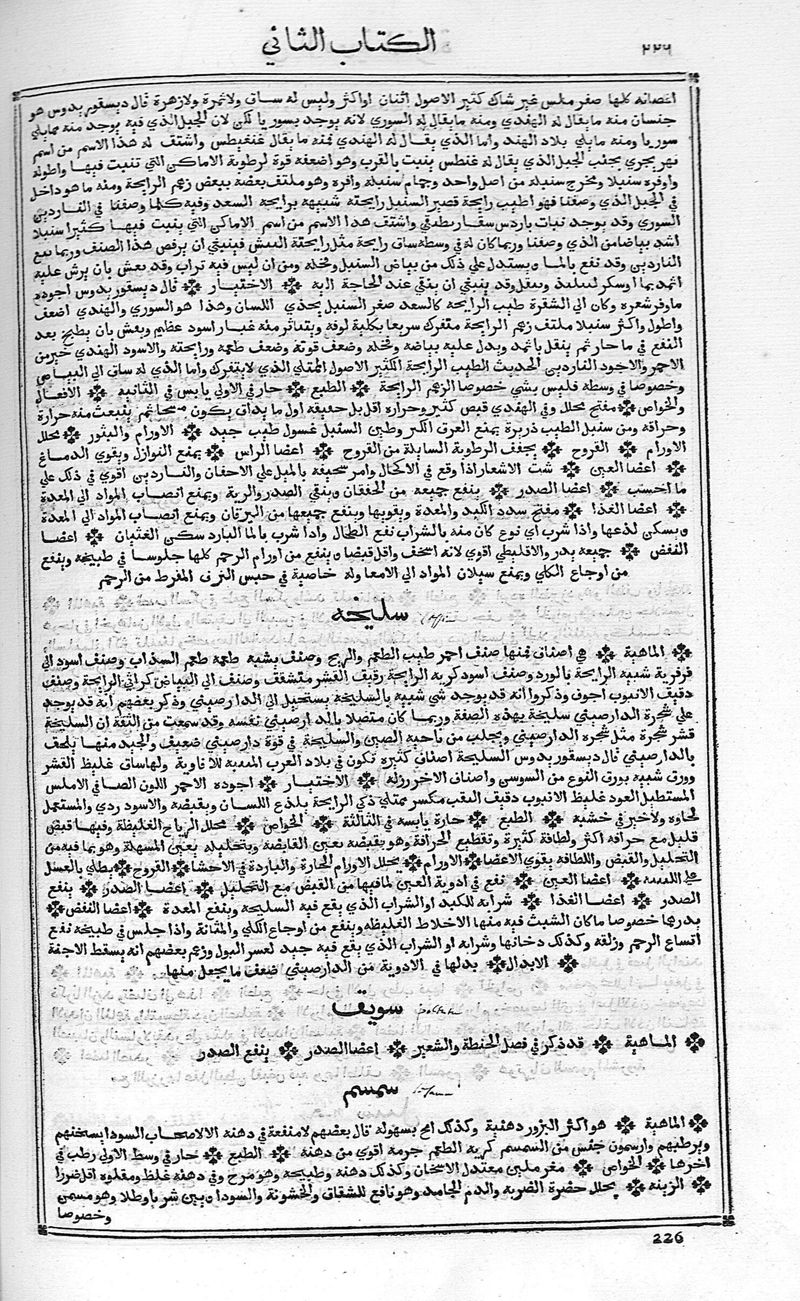 ٢٢٦
الكتاب الثاني
اغصانه كلها صغر ملس غير شاك كثير الاصول اثنان او اكثر وليس له ساق ولا ثمرة ولا زهرة قال ديسقوريدوس هو
جنسان منه ما يقال له الهندي ومنه ما يقال له السوري لانه يوجد بسوريا لكن لان الجبل الذي فيه يوجد منه مما يلي
سوريا ومنه ما يلي بلاد الهند واما الذي يقال له الهندي فمنه ما يقال غنغيطس واشتق له هذا الاسم من اسم
نهر يجري بجنب الجبل الذي يقال له غنطس ينبت بالقرب وهو اضعفه قوة لرطوبة الاماكن التي تنبت فيها واطوله
واوفره سنبلا ومخرج سنبله من اصل واحد وجمام سنبله وافره وهو ملتف بعضه ببعض زهم الرايحة ومنه ما هو داخل
في الجبل الذي وصفنا فهو اطيب رايحة قصير السنبل رايحته شبيهه برايحه السعد وفيه كلما وصفنا في الناردين
السوري وقد يوجد نبات باردس سقاريطيقي واشتق هذا الاسم من اسم الاماكن التي ينبت فيها كثيرا سنبلا
اشد بياضا من الذي وصفنا وربما كان له في وسطه ساق رايحة مثل رايحته البيش فينبغي ان يرفض هذا الصنف وربما بيع
الناردين وقد نفع بالما ويستدل علي ذلك من بياض السنبل وقحله ومن ان ليس فيه تراب وقد يغش بان يرش عليه
اثمد بما او سكر ليتلبد ويثقل وقد ينبغي ان ينقي عند الحاجة اليه الاختيار قال ديسقوريدوس اجوده
ما وفر شعره وكان الي الشقرة طيب الرايحه كالسعد صغر السنبل يحذي اللسان وهذا هو السوري والهندي اضعف
واطول واكثر سنبلا ملتف زهم الرايحة متفرك سريعا بكلية لونه ويتناثر منه غبار اسود عظيم ويغش بان يطبخ بعد
النقع في ما حار ثم يثقل باثمد ويدل عليه بياضه وقحله وضعف قوته وضعف طعمه ورايحته والاسود الهندي خير من
الاحمر والاجود الناردين الحديث الطيب الرايحة الكثير الاصول الممتلي الذي لا يتفرك واما الذي له ساق الي البياض
وخصوصا في وسطه فليس بشي خصوصا الزهم الرايحة الطبع حار في الاولي يابس في الثانيه الافعال
والخواص مفتح محلل وفي الهندي قبض كثير وحرارة اقل بل خفيفه اول ما يذاق يكون ثم ينبعث منه حرارة
وحرافه ومن سنبل الطيب ذريرة يمنع العرق الكثير وطين السنبل غسول طيب جيد الاورام والبثور محلل
الاورام القروح يجفف الرطوبة السايلة من القروح اعضا الراس يمنع النوازل ويقوي الدماغ
اعضا العين شت الاشعار اذا وقع في الاكحال وامر سحيقه بالميل علي الاجفان والناردين اقوي في ذلك علي
ما احسب اعضا الصدر ينفع جميعه من الخفقان وينقي الصدر والرية ويمنع انصباب المواد الي المعدة
اعضا الغذا مفتح سدد الكبد والمعدة ويقويها وينفع جميعها من اليرقان ويمنع انصباب المواد الي المعدة
ويسكن لذعها واذا شرب اي نوع كان منه بالشراب نفع الطحال واذا شرب بالما البارد سكن الغثيان اعضا
النفض جميعه يدر والاقليطي اقوي لانه اسخف واقل قبضا وينفع من اورام الرحم كلها جلوسا في طبيخه وينفع
من اوجاع الكلي ويمنع سيلان المواد الي الامعا وله خاصية في حبس النزف المفرط من الرحم
سليخه
الماهية هي اصناف فمنها صنف احمر طيب الطعم والريح وصنف يشبه طعمه طعم السذاب وصنف اسود الي
فرفرية شبيه الرايحة بالورد وصنف اسود كريه الرايحة رقيق القشر متشقق وصنف الي البياض كراثي الرايحة وصنف
دقيق الانبوب اجوف وذكروا انه قد يوجد شي شبيه بالسليخة يستحيل الي الدارصيني وذكر بعضهم انه قد يوجد
علي شجرة الدارصيني سليخة بهذه الصفة وربما كان متصلا بالدارصيني نفسه وقد سمعت من الثقة ان السليخة
قشر شجرة مثل شجره الدارصيني ويجلب من ناحية الصين والسليخة في قوة دارصيني ضعيف والجيد منها يلحق
بالدارصيني قال ديسقوريدوس السليحة اصناف كثيرة تكون في بلاد العرب المنبته للافاوية ولها ساق غليظ القشر
وورق شبيه بورق النوع من السوسي واصناف الاخر رزله الاختيار اجوده الاحمر اللون الصافي الاملس
المستطيل العود غليظ الانبوب دقيق الثقب مكسر ممتلي ذكي الرايحة يلذع اللسان ويقبضه والاسود ردي والمستعمل
لحاوه ولا خير في خشبه الطبع حارة يابسه في الثالثة الخواص محلل الرياح الغليظة وفيها قبض
قليل مع حرافه اكثر ولطافة كثيرة وتقطيع الحرافة وهو يقبضه يعين القابضة وبتحليله يعين المسهلة وهو بما فيه من
التحليل والقبض واللطافه يقوي الاعضا الاورام يحلل الاورام الحارة والباردة في الاحشا القروح يطلي بالعسل
علي اللبنيه اعضا العين نفع في ادوية العين لما فيها من القبض مع التحليل اعضا الصدر ينفع
الصدر اعضا الغذا شرابه للكبد او الشراب الذي يقع فيه السليخه وينفع المعدة اعضا النفض
يدر بما خصوصا ما كان الشبث فيه منها الاخلاط الغليظه وينفع من اوجاع الكلي والمثانة واذا جلس في طبيخه نفع
اتساع الرحم وزلقه وكذلك دخانها وشرابه او الشراب الذي يقع فيه جيد لعسر البول وزعم بعضهم انه يسقط الاجنة
الابدال بدلها في الادوية من الدارصيني ضعف ما يجعل منها
سويق
الماهية قد ذكر في فصل الحنطة والشعير اعضا الصدر ينفع الصدر
سمسم
الماهية هو اكثر البزور دهنية وكذلك ايح بسهوله قال بعضهم لا منفعة في دهنه الا لاصحاب السودا يسخنهم
ويرطبهم وارسيمون جنس من السمسم كريه الطعم جرمه اقوي من دهنه الطبع حار في وسط الاولي رطب في
اخرها الخواص مغر ملين معتدل الاسخان وكذلك دهنه وطبيخه وهو مرخ وفي دهنه غلظ ومقلوه اقل ضررا
الزينه يحلل حضرة الضربه والدم الجامد وهو نافع للشقاق والخشونة والسوداويين شربا وطلا وهو مسمن
وخصوصا
226